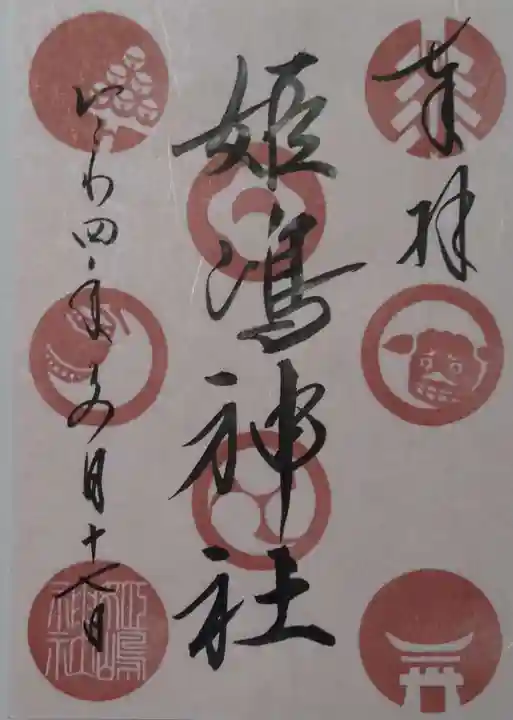 奉拝
姫嶋神社
令和四年文月十七日
姫嶋
神社